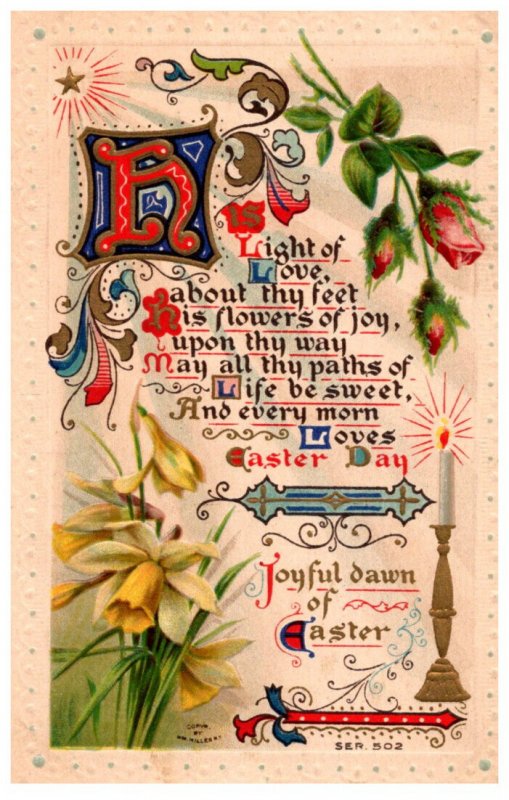 His
Light of
Love,
about thy feet
His flowers of joy,
upon thy way
May all thy paths of
Life be sweet,
And every morn
Loves
Easter Day
Joyful dawn
of
Easter
COPYR.
BY
SER. 502